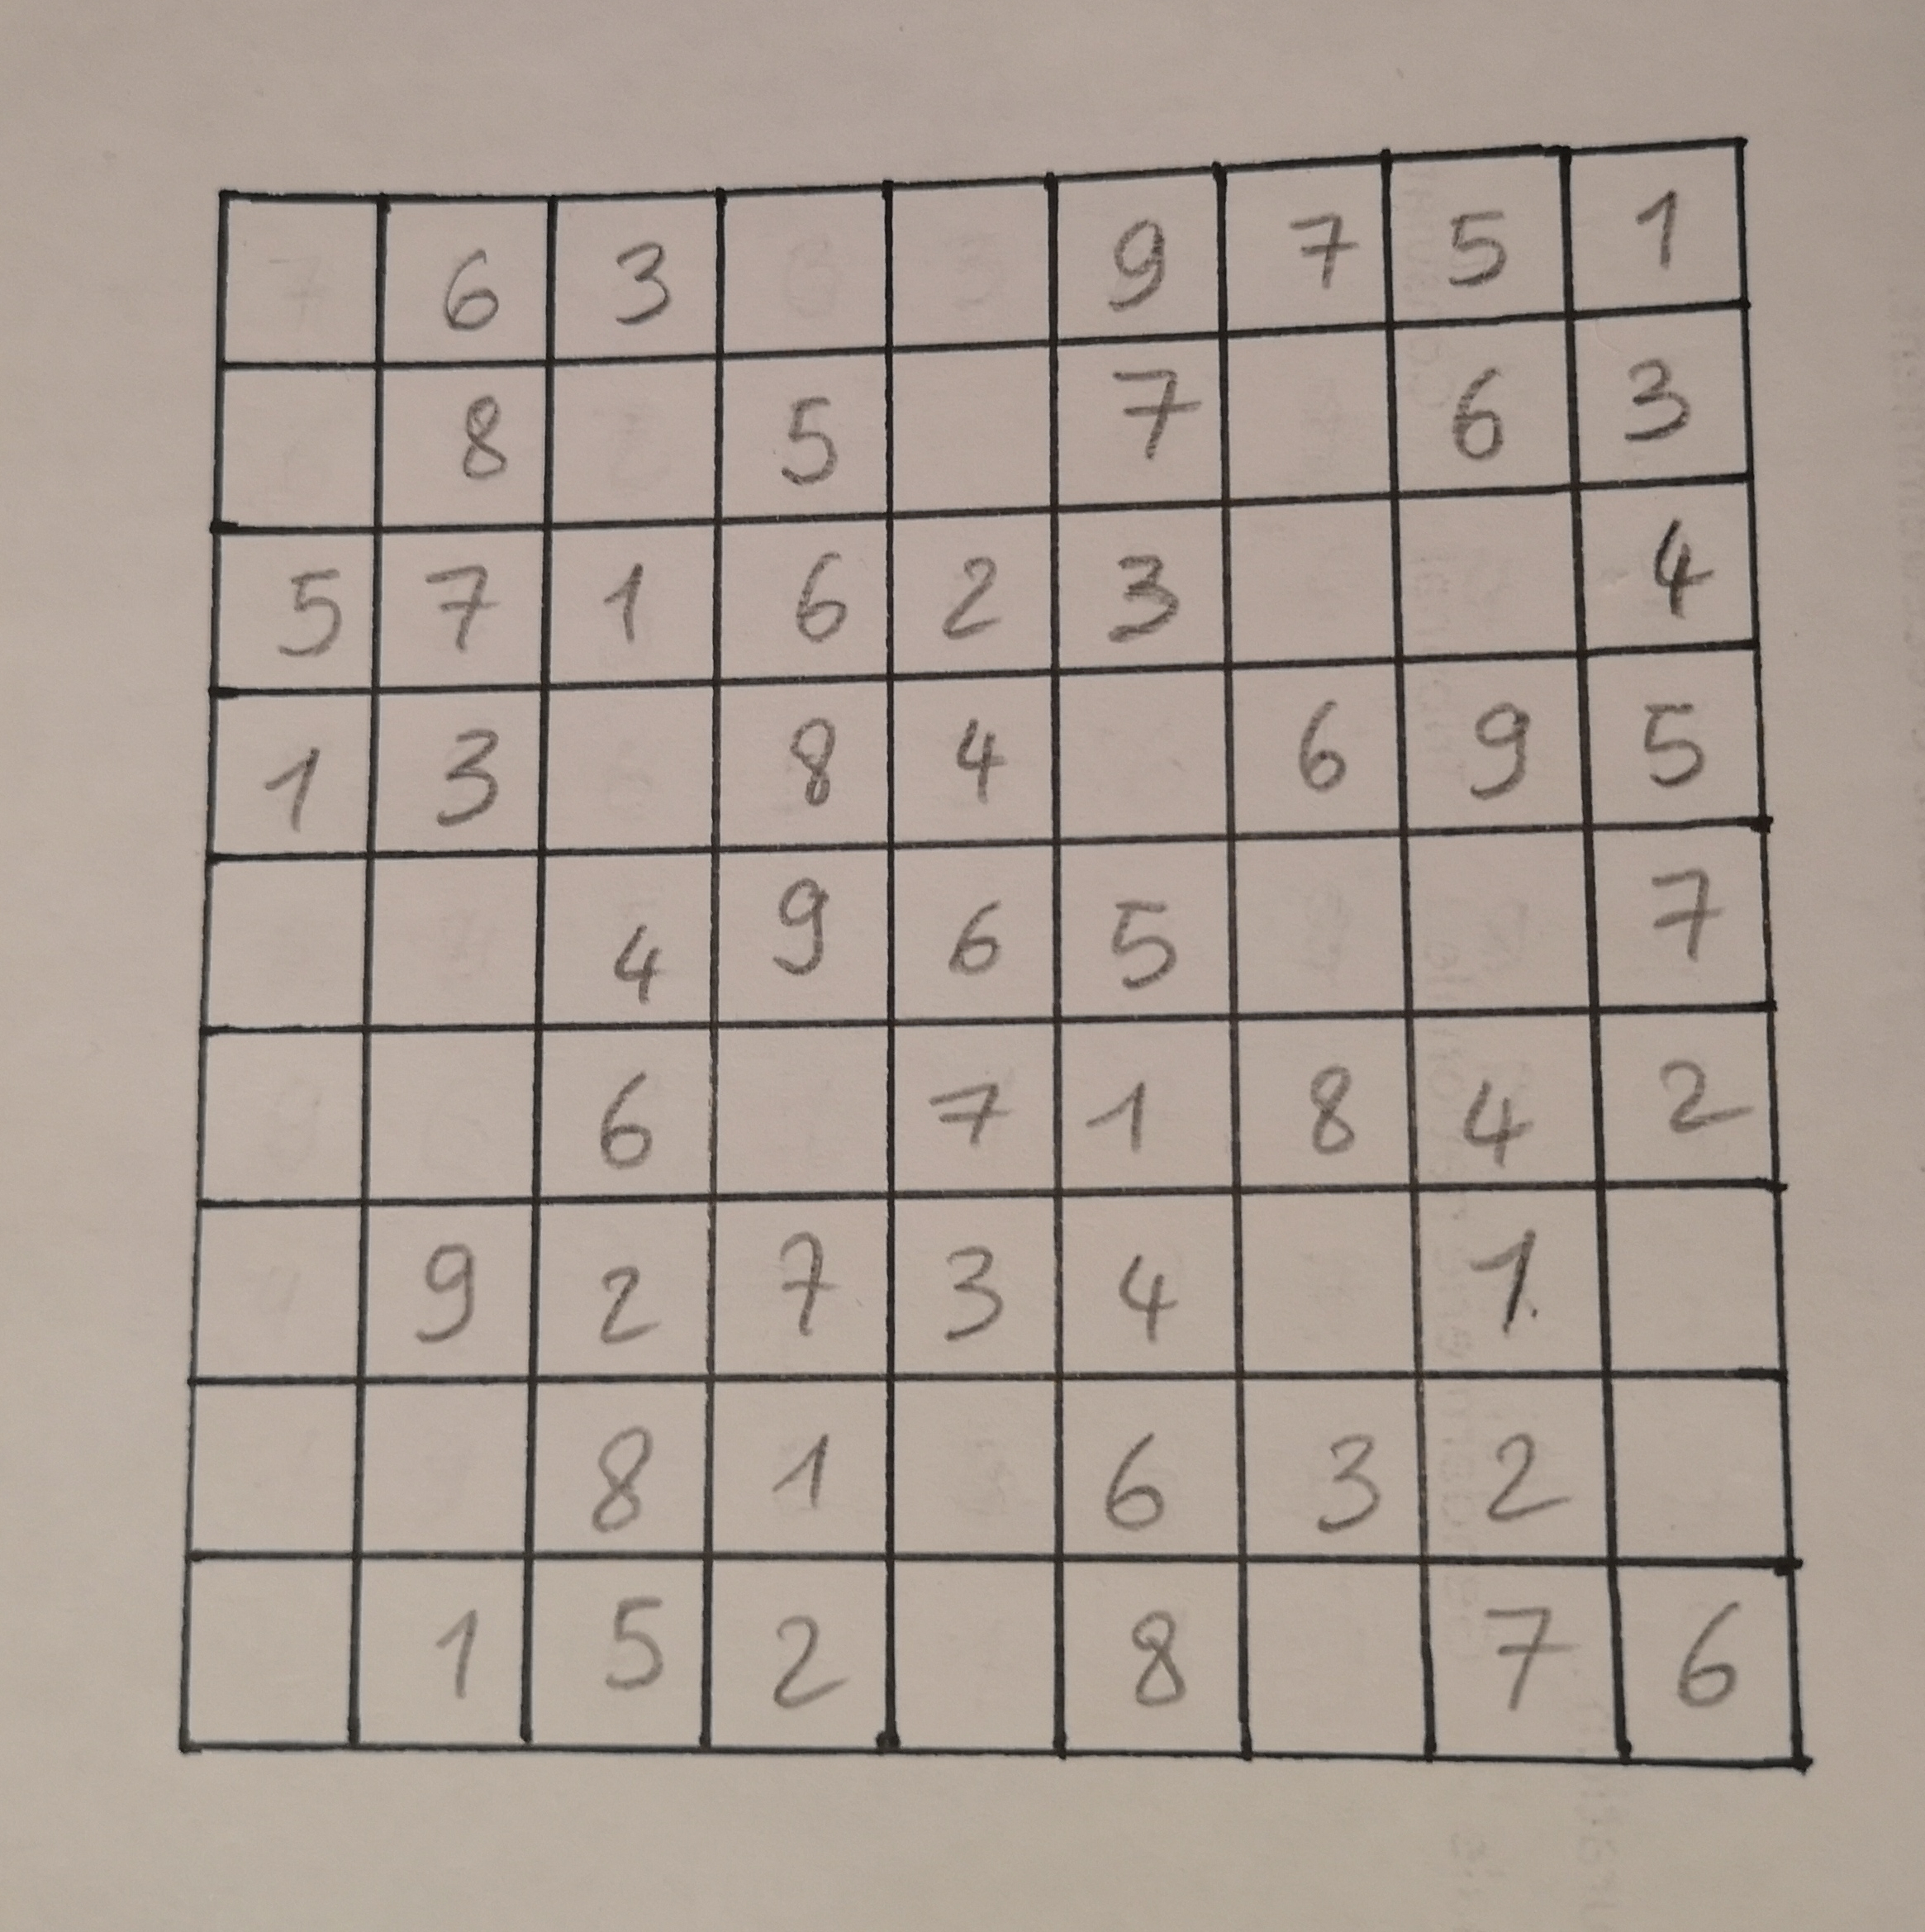 6 3 9 7 5 1
8 5 7 6 3
5 7 1 6 2 3 4
1 3 8 4 6 9 5
4 9 6 5 7
6 7 1 8 4 2
9 2 7 3 4 1
8 1 6 3 2
1 5 2 8 7 6